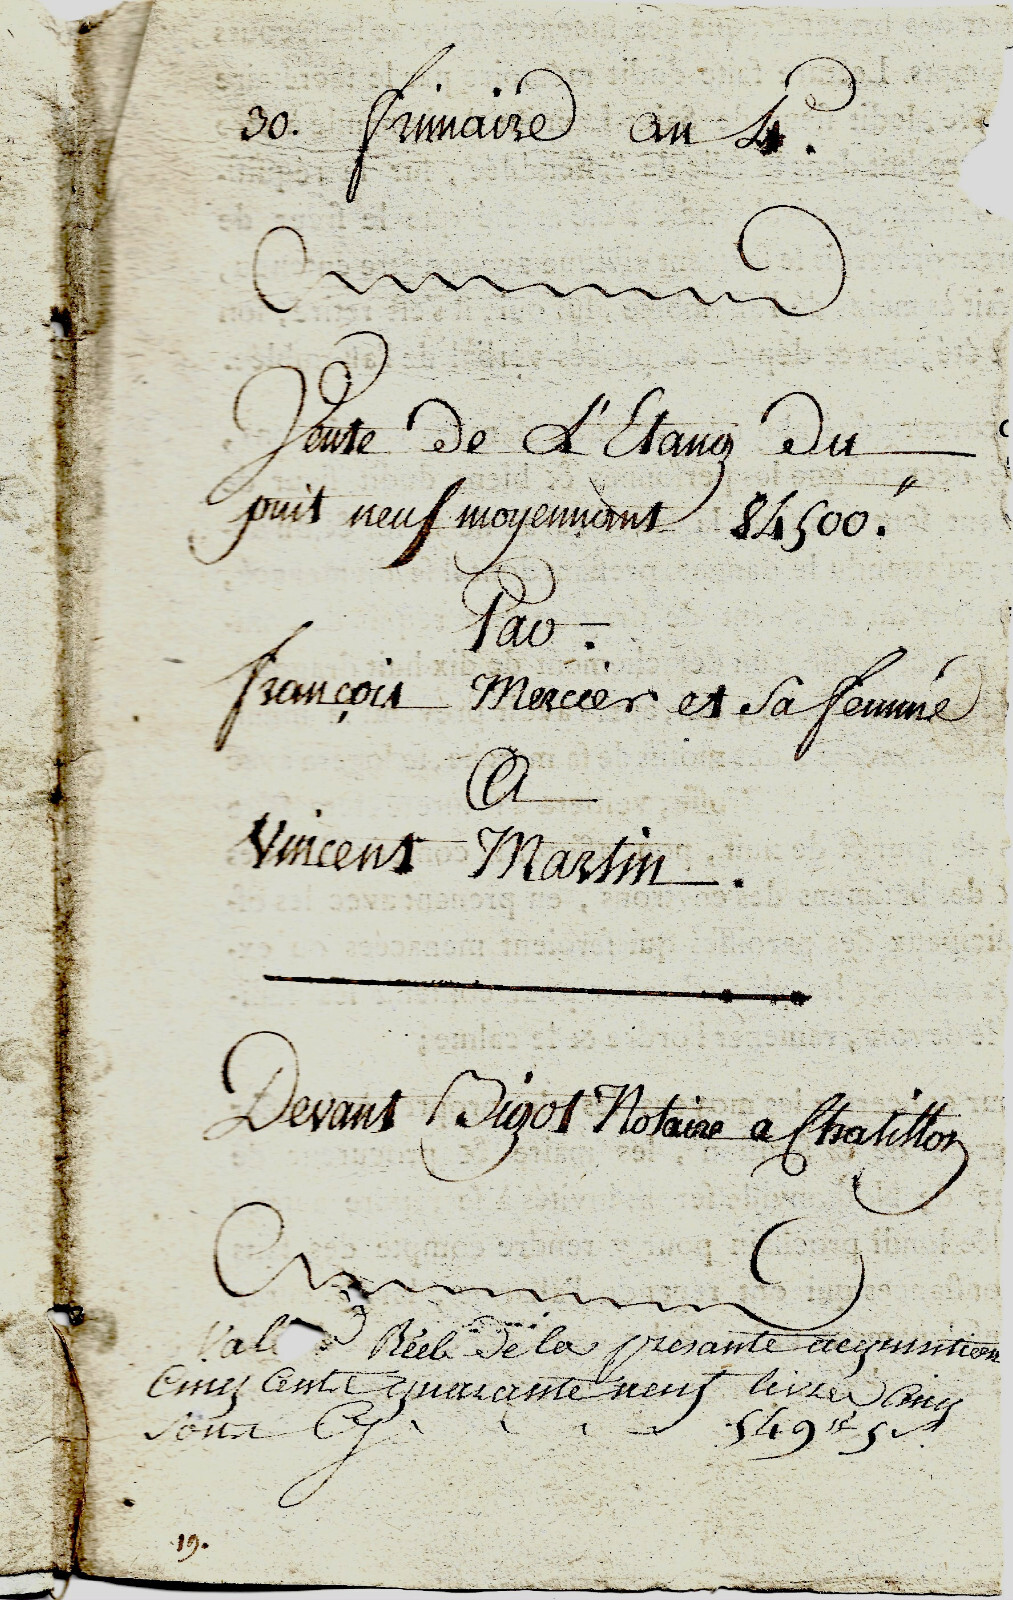 30. frimaire an 4.
Vente de L'Etang du
puit neuf moyennant 84500."
Par.
françois Mercier et sa femme
A
Vincent Martin.
Devant Bigot Notaire a Chatillon
Réel de la presante acquisition
Cinq Cent quarante neuf livres Cinq
sous Cy 549 5
19.